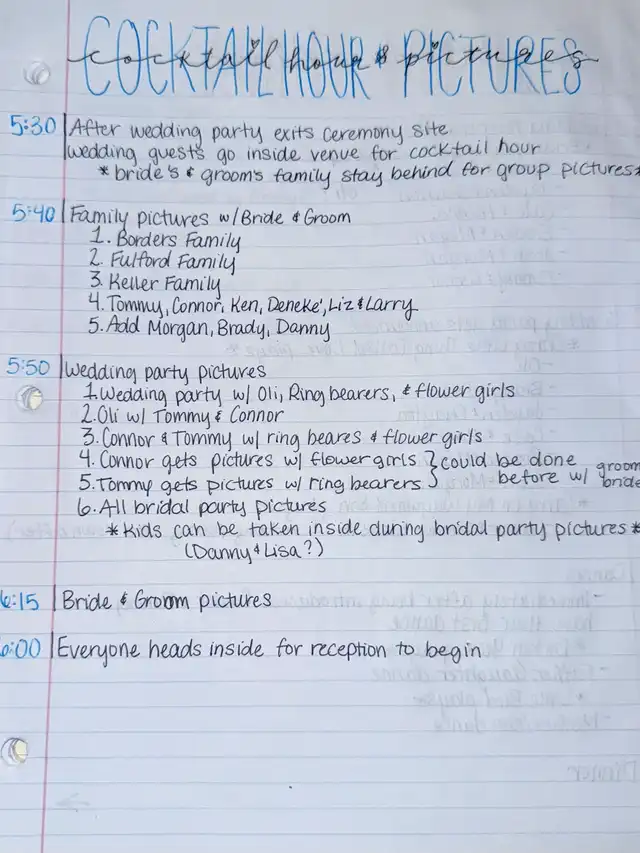 COCKTAIL HOUR & PICTURES
cocktail hour & pictures
5:30 After wedding party exits ceremony site
wedding guests go inside venue for cocktail hour
* bride's & groom's family stay behind for group pictures*
5:40 Family pictures w/ Bride & Groom
1. Borders Family
2. Fulford Family
3. Keller Family
4. Tommy, Connor, Ken, Deneke', Liz & Larry
5. Add Morgan, Brady, Danny
5:50 Wedding party pictures
1. Wedding party w/ Oli, Ring bearers, & flower girls
2. Oli w/ Tommy & Connor
3. Connor & Tommy w/ ring beares & flower girls
4. Connor gets pictures w/ flower girls } could be done
5. Tommy gets pictures w/ ring bearers } before w/ groom, bride
6. All bridal party pictures
* Kids can be taken inside during bridal party pictures *
(Danny & Lisa?)
6:15 Bride & Groom pictures
:00 Everyone heads inside for reception to begin